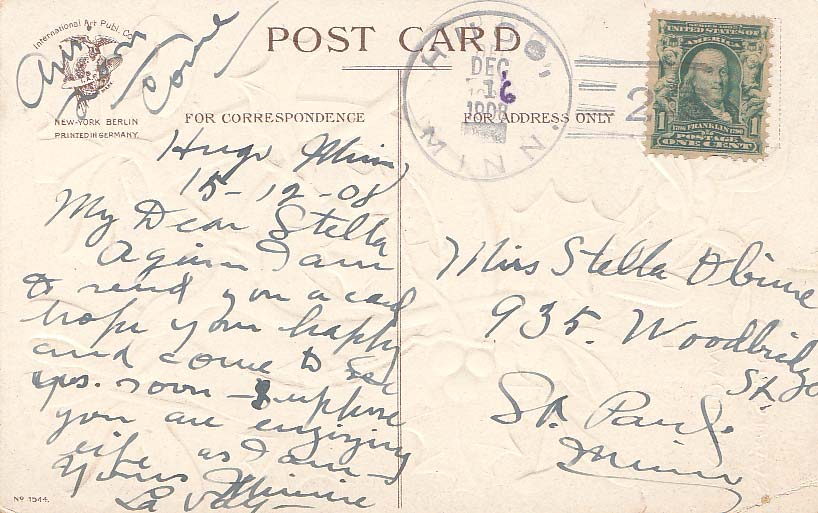 International Art Publ. Co.
NEW-YORK BERLIN
PRINTED IN GERMANY.
POST CARD
FOR CORRESPONDENCE
FOR ADDRESS ONLY
HUGO, MINN.
DEC
16
1908
2
UNITED STATES OF AMERICA
1706 FRANKLIN 1790
1 POSTAGE 1
ONE CENT
Hugo Minn
15-12-08
My Dear Stella
Again I am
to send you a card
hope your happy
and come to see
us soon - Suppose
you are enjoying
life as I am -
Yours Minnie
La Vay
Miss Stella
935. Woodbridge
St.
St. Paul.
Minn
No 1544.